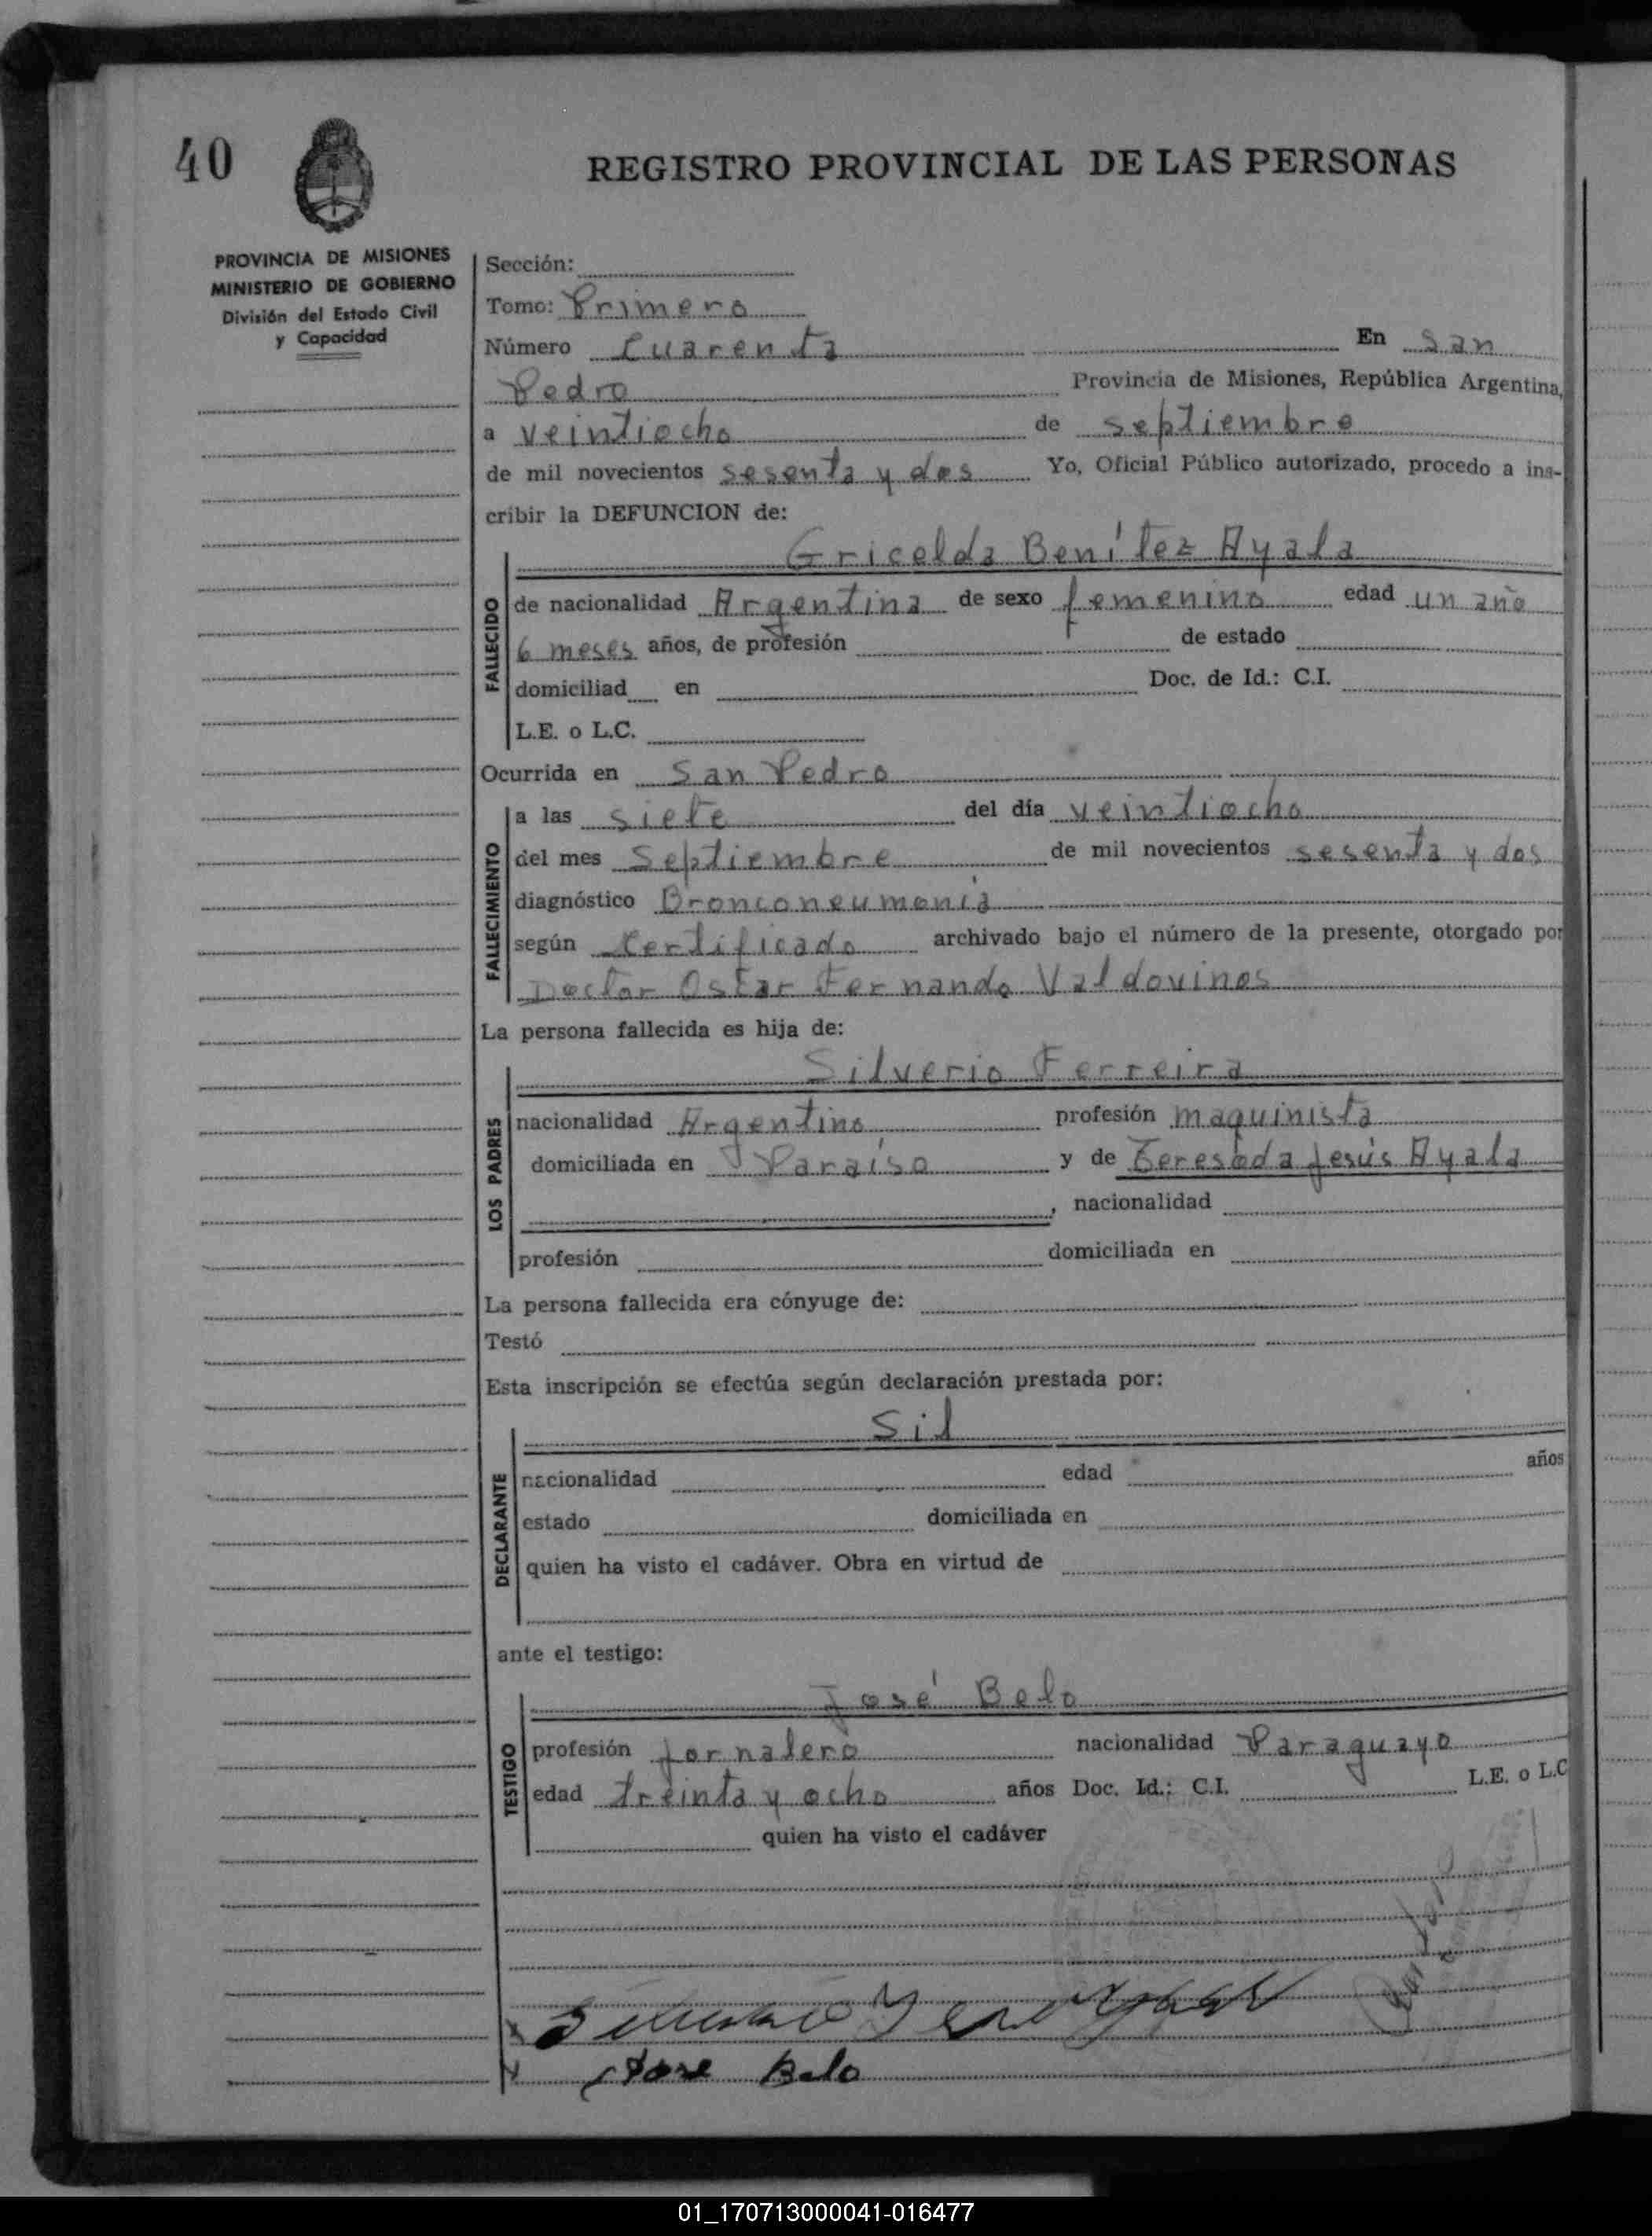 40
REGISTRO PROVINCIAL DE LAS PERSONAS
PROVINCIA DE MISIONES
MINISTERIO DE GOBIERNO
División del Estado Civil
y Capacidad
Sección:
Tomo: Primero
Número Cuarenta En San
Pedro Provincia de Misiones, República Argentina,
a veintiocho de septiembre
de mil novecientos sesenta y dos Yo, Oficial Público autorizado, procedo a ins-
cribir la DEFUNCION de:
Gricelda Benítez Ayala
FALLECIDO
de nacionalidad Argentina de sexo femenino edad un año
6 meses años, de profesión de estado
domiciliad en Doc. de Id.: C.I.
L.E. o L.C.
Ocurrida en San Pedro
FALLECIMIENTO
a las siete del día veintiocho
del mes Septiembre de mil novecientos sesenta y dos
diagnóstico Bronconeumonía
según Certificado archivado bajo el número de la presente, otorgado por
Doctor Oscar Fernando Valdovinos
La persona fallecida es hija de:
Silverio Ferreira
LOS PADRES
nacionalidad Argentino profesión maquinista
domiciliada en Paraíso y de Jesús Ayala
, nacionalidad
profesión domiciliada en
La persona fallecida era cónyuge de:
Testó
Esta inscripción se efectúa según declaración prestada por:
Sil
DECLARANTE
nacionalidad edad años
estado domiciliada en
quien ha visto el cadáver. Obra en virtud de
ante el testigo:
José Belo
TESTIGO
profesión jornalero nacionalidad Paraguayo
edad treinta y ocho años Doc. Id.: C.I. L.E. o L.C
quien ha visto el cadáver
Jose Belo
01_170713000041-016477